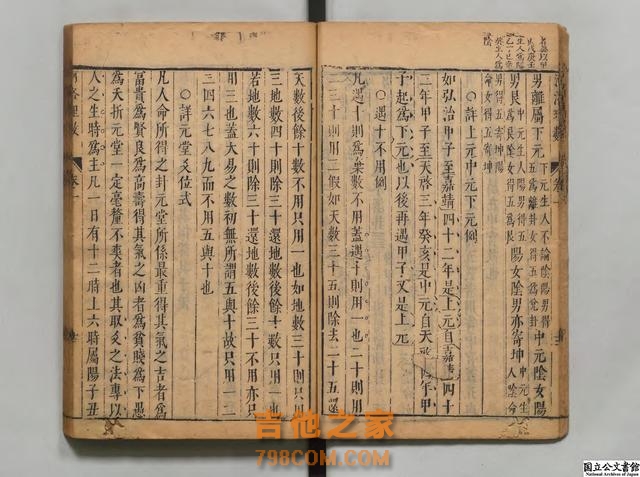 男離屬下元
下元生人不論陰陽男得
五為離卦女得五為兌卦
中元陰女陽
男艮
中元生陽男得五
為艮陰女得五為艮
陽女陰男亦寄坤
中元生人陰
命女得五寄坤
○詳上元中元下元例
如弘治甲子至嘉靖四十二年是上元自嘉靖四十
二年甲子至天啓三年癸亥是中元自天啓四年甲
子起為下元也以後再遇甲子又是上元
○遇十不用例
凡遇十則為衆數不用蓋遇十則用一也二十則用
二三十則用三假如天數三十五則除去二十五還
天數後餘十數不用只用一也如地數三十則只用
三地數四十則除三十還地數後餘十數只用一
若地數六十則除三十還地數後餘三十不用亦只
用三也蓋大易之數初無所謂五與十故只用一二
三四六七八九而不用五與十也
○詳元堂爻位式
凡人命所得之卦元堂所係最重得其氣之吉者為
富貴為賢良為高壽得其氣之凶者為貧賤為下愚
為夭折元堂一定毫釐不爽者也其取爻之法專以
人之生時為主凡一日有十二時上六時屬陽子丑
卷一
吉他之家
798COM.COM
国立公文書館
National Archives of Japan